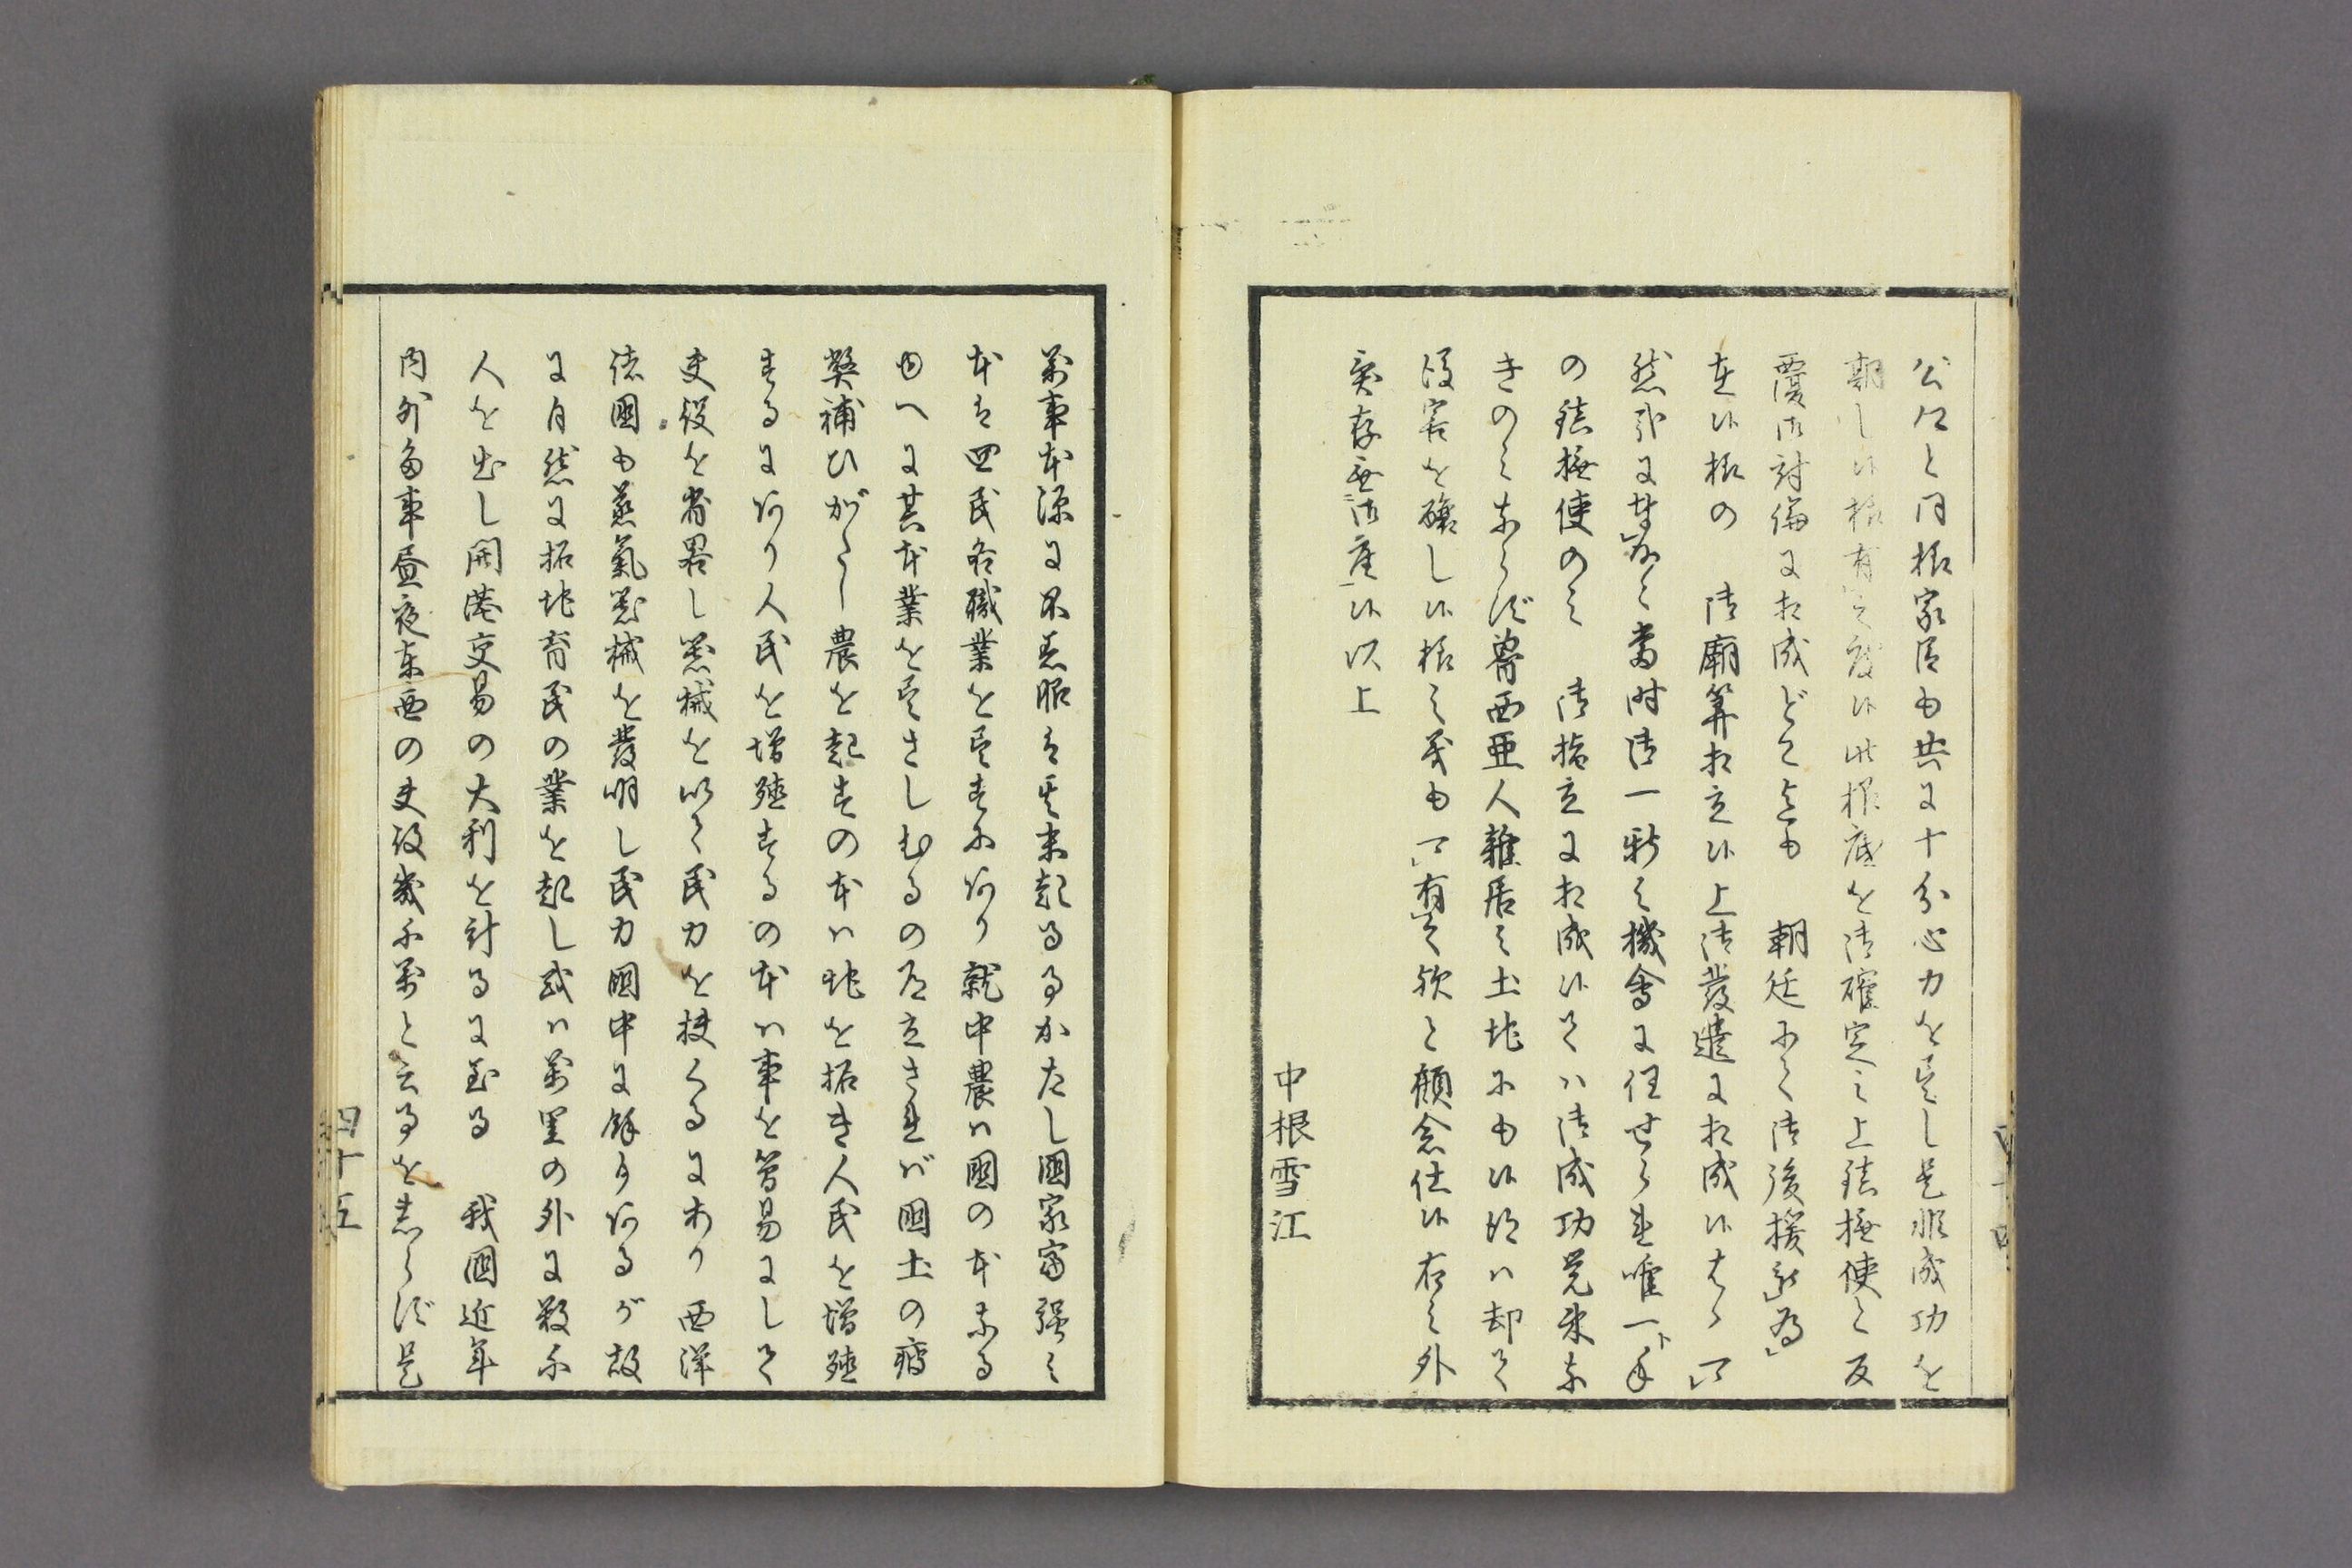 公仁と同振家居も共に十分心力を尽し是非成功を
期し候様有之度候此根底を御確定之上鎮撫使と反
覆御討論に相成どこ迄も 朝廷にて御後援被為
在候様の 御廟算相立候上御発遣に相成候はゝ可
然哉に奉存候当時御一新之機会に任せられ唯一ト手
の鎮撫使のミ 御措立に相成候ては御成功覚束な
きのミならず魯西亜人雑居之土地にも候得ハ却て
後害を醸し候様之義も可有之歟と顧念仕候右之外
異存無御座候以上
中根雪江
萬事本源に不悉服は其末起る事かたし國家富強之
本は四民各職業を尽すにあり就中農ハ國の本なる
ゆへに其本業を尽さしむるの道立ざれば國土の疲
弊補ひがたし農を起すの本ハ地を拓き人民を増殖
するにあり人民を増殖するの本ハ事を簡易にして
吏役を省畧し器械を以て民力を扶くるにあり西洋
諸國も蒸氣器械を發明し民力國中に餘りあるが故
に自然に拓地育民の業を起し或ハ萬里の外に数千
人を出し開港交易の大利を計るに至る 我國近年
内外多事昼夜東西の吏役幾千萬と云事を知らず是
四十五